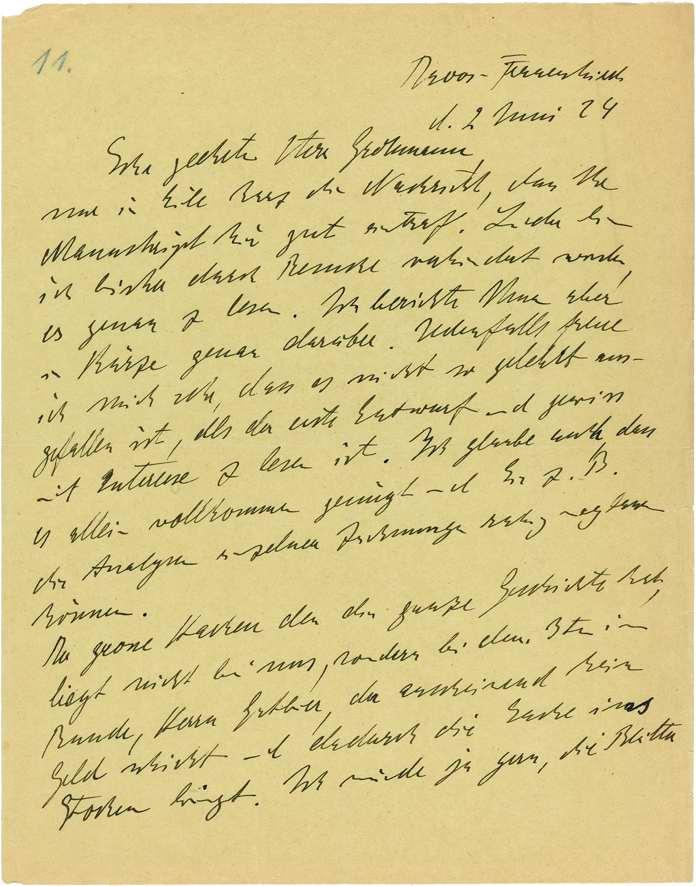 11.
Davos-Frauenkirch
d. 2 Juni 24
Sehr geehrter Herr Grohmann,
nur in Eile kurz die Nachricht, dass Ihr
Manuskript hier gut eintraf. Leider bin
ich bisher durch Besuche verhindert worden,
es genau z lesen. Ich berichte Ihnen aber
in Kürze genau darüber. Jedenfalls freue
ich mich sehr, dass es nicht so gelehrt aus-
gefallen ist, als der erste Entwurf und gewiss
mit Interesse z lesen ist. Ich glaube auch, dass
es allein vollkommen genügt und Sie z. B.
die Analysen einzelner Zeichnungen ruhig weglassen
können.
Der grosse Hacken den die ganze Geschichte hat,
liegt nicht bei uns, sondern bei dem 3ten im
Bunde, Herrn, der anscheinend kein
Geld schickt und dadurch die Sache ins
Stocken bringt. Ich würde ja gern, die Blätter